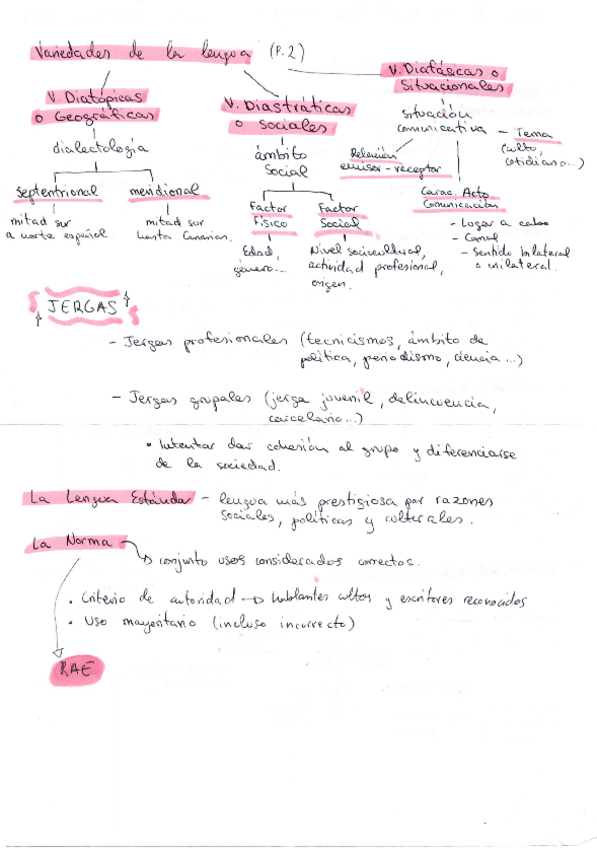 Variedades de la lengua (P.2)
V. Diatópicas
o Geográficas
dialectología
septentrional
mitad sur
a norte español
meridional
mitad sur
hasta Canarias.
V. Diastráticas
o sociales
ámbito
social
Factor
Físico
Edad,
género...
Factor
Social
Nivel sociocultural,
actividad profesional,
origen.
V. Diafásicas o
Situacionales
situación
comunicativa
Relación
emisor-receptor
Carac. Acto
Comunicación
- Lugar a cabo
- Canal
- Sentido bilateral
o unilateral.
- Tema
(culto,
cotidiano...)
JERGAS
- Jergas profesionales (tecnicismos, ámbito de
política, periodismo, ciencia...)
- Jergas grupales (jerga juvenil, delincuencia,
carcelario...)
• Intentar dar cohesión al grupo y diferenciarse
de la sociedad.
La Lengua Estándar - lengua más prestigiosa por razones
sociales, políticas y culturales.
La Norma
→ conjunto usos considerados correctos.
• Criterio de autoridad → hablantes cultos y escritores reconocidos
• Uso mayoritario (incluso incorrecto)
RAE